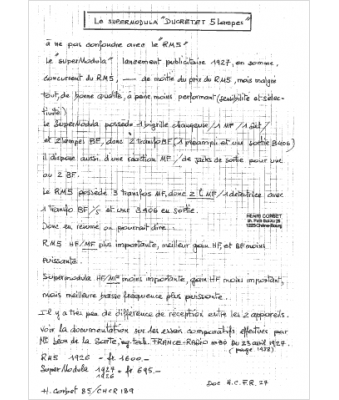 Le SUPERMODULA "DUCRETET 5 Lampes"
à ne pas confondre avec le "RM5"
Le "SuperModula" lancement publicitaire 1927, en somme,
concurrent du RM5, — de moitié du prix du RM5, mais malgré
tout, de bonne qualité, à peine moins performant (sensibilité et sélec-
tivité)
Le SuperModula possède 1 bigrille changeuse / 1 MF / 1 dét /
et 2 lampes BF, donc 2 transfo BF, 1 préampli et une sortie B406
il dispose aussi d'une réaction MF / de jacks de sortie pour une
ou 2 BF.
Le RM5 possède 3 transfos MF, donc 2 L MF / 1 détectrice avec
1 transfo BF / et une B406 en sortie.
HENRI CORBET
1225 Chêne-Bourg
Donc en résumé on pourrait dire:
RM5 HF/MF plus importante, meilleur gain HF, et BF moins
puissante.
Supermodula HF/MF moins importante, gain HF moins important,
mais meilleure basse fréquence plus puissante.
Il y a très peu de différence de réception entre les 2 appareils.
Voir la documentation sur les essais comparatifs effectués par
Mr Léon de la Sarte, FRANCE-RADIO No 80 du 23 avril 1927.
(page 1938)
RM5 1926 = fr. 1600.-
SuperModula 1927 = fr 695.-
1926
Doc A.C.F.R. 27
H. Corbet 85/CHCR 189